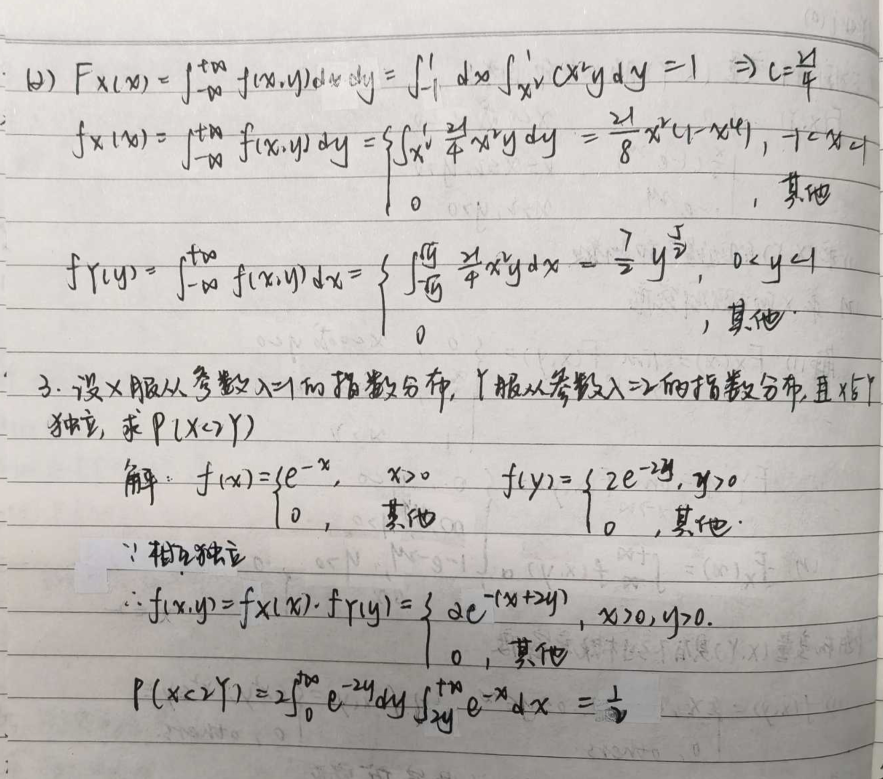 (2) Fx(x) = ∫_{-∞}^{+∞} f(x,y)dxdy = ∫_{-1}^{1} dx ∫_{x²}^{1} Cx²y dy = 1 ⇒ C = 21/4
fx(x) = ∫_{-∞}^{+∞} f(x,y)dy = { ∫_{x²}^{1} 21/4 x²y dy = 21/8 x²(1-x⁴), -1<x<1
0 , 其他
fY(y) = ∫_{-∞}^{+∞} f(x,y)dx = { ∫_{-√y}^{√y} 21/4 x²y dx = 7/2 y^{5/2}, 0<y<1
0 , 其他.
3. 设X服从参数λ=1的指数分布, Y服从参数λ=2的指数分布, 且X与Y
独立, 求P(X<2Y)
解: f(x) = { e^{-x}, x>0 f(y) = { 2e^{-2y}, y>0
0 , 其他 0 , 其他.
∵ 相互独立
∴ f(x,y) = fX(x)·fY(y) = { 2e^{-(x+2y)}, x>0, y>0.
0 , 其他
P(X<2Y) = 2∫_{0}^{+∞} e^{-2y}dy ∫_{2y}^{+∞} e^{-x}dx = 1/2